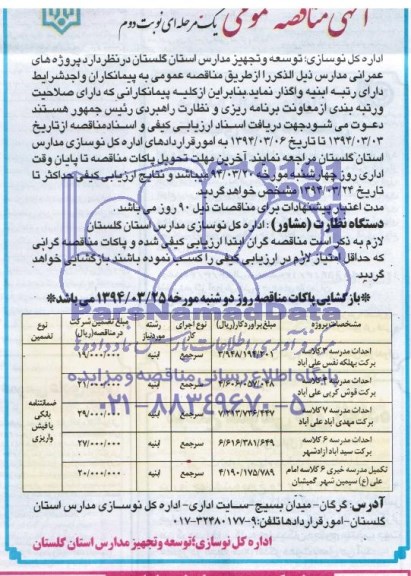 آگهی مناقصه عمومی یک مرحله ای نوبت دوم
اداره کل نوسازی؛ توسعه و تجهیز مدارس استان گلستان در نظر دارد پروژه های
عمرانی مدارس ذیل الذکر را از طریق مناقصه عمومی به پیمانکاران واجد شرایط
دارای رتبه ابنیه واگذار نماید بنابراین از کلیه پیمانکارانی که دارای صلاحیت
ورتبه بندی از معاونت برنامه ریزی و نظارت راهبردی رئیس جمهور هستند
دعوت می شود جهت دریافت اسناد ارزیابی کیفی و اسناد مناقصه از تاریخ
۱۳۹۴/۰۳/۰۳ تا تاریخ ۱۳۹۴/۰۳/۰۶ به امور قراردادهای اداره کل نوسازی مدارس
استان گلستان مراجعه نمایند. آخرین مهلت تحویل پاکات مناقصه تا پایان وقت
اداری روز چهارشنبه مورخه ۹۴/۰۳/۲۰ میباشد و نتایج ارزیابی کیفی حداکثر تا
تاریخ ۱۳۹۴/۰۳/۲۴ مشخص خواهد گردید.
مدت اعتبار پیشنهادات برای مناقصات ذیل ۹۰ روز می باشد.
دستگاه نظارت (مشاور) : اداره کل نوسازی مدارس استان گلستان
لازم به ذکر است مناقصه گران ابتدا ارزیابی کیفی شده و پاکات مناقصه گرانی
که حداقل امتیاز لازم در ارزیابی کیفی را کسب نموده باشند بازگشایی خواهد
گردید.
*بازگشایی پاکات مناقصه روز دو شنبه مورخه ۱۳۹۴/۰۳/۲۵ می باشد*
ParsNamadData
مرکز فرآوری اطلاعات پارس نماد داده ها
پایگاه اطلاع رسانی مناقصه و مزایده
۰۲۱-۸۸۳۴۹۶۷۰-۵
مشخصات پروژه مبلغ برآورد کار(ریال) نوع اجرای کار رشته موردنیاز مبلغ تضمین شرکت در مناقصه(ریال) نوع تضمین
احداث مدرسه ۳ کلاسه برکت بهلکه نفس علی آباد ۳/۹۴۸/۱۹۴/۳۰۱ سرجمع ابنیه ۱۹/۰۰۰/۰۰۰ ضمانتنامه بانکی یا فیش واریزی
احداث مدرسه ۳ کلاسه برکت قوش کربی علی آباد ۴/۶۰۶/۰۵۷/۰۴۸ سرجمع ابنیه ۲۱/۰۰۰/۰۰۰
احداث مدرسه ۷ کلاسه برکت مهدی آباد علی آباد ۷/۳۹۳/۷۳۶/۴۴۷ سرجمع ابنیه ۲۹/۰۰۰/۰۰۰
احداث مدرسه ۶ کلاسه برکت سید آباد آزادشهر ۶/۶۱۶/۳۸۱/۶۴۹ سرجمع ابنیه ۲۷/۰۰۰/۰۰۰
تکمیل مدرسه خیری ۶ کلاسه امام علی (ع) سیمین شهر گمیشان ۴/۱۹۰/۱۷۵/۷۸۹ سرجمع ابنیه ۲۰/۰۰۰/۰۰۰
آدرس: گرگان- میدان بسیج - سایت اداری - اداره کل نوسازی مدارس استان
گلستان- امور قراردادها تلفن: ۹-۳۲۴۸۰۱۷۷-۰۱۷
اداره کل نوسازی؛ توسعه و تجهیز مدارس استان گلستان